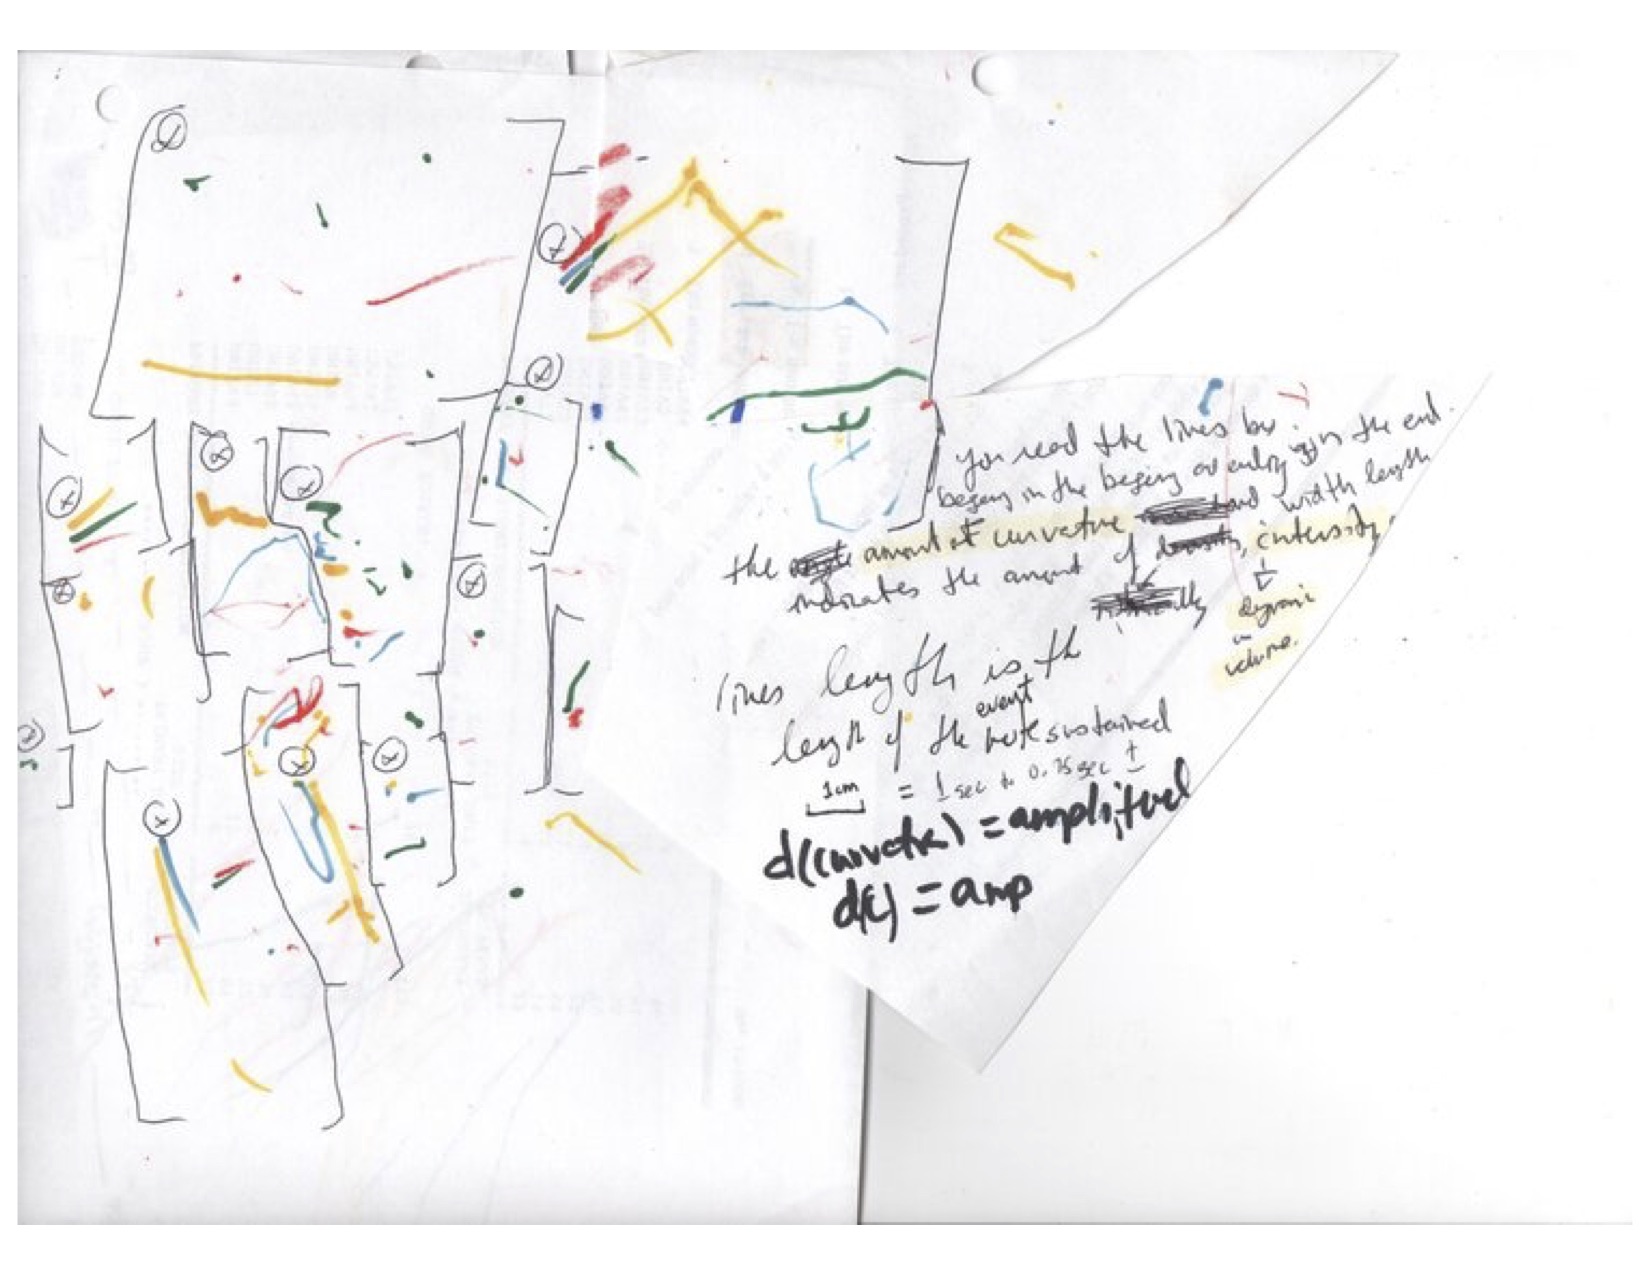 you read the lines by.
begeng in the begeng and ending in the end
the amount of curvature and width length
indicates the amount of intensity
dynamic
in
volume.
lines length is the
event
length of the note sustained
1cm = 1 sec to 0.75 sec ±
d(curvature) = amplitued
d(c) = amp